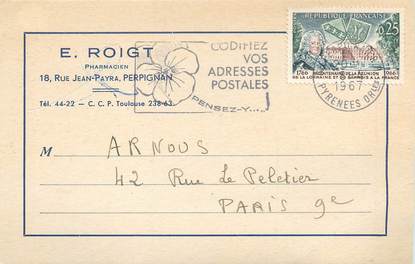 E. ROIGT
PHARMACIEN
18, RUE JEAN-PAYRA, PERPIGNAN
Tél. 44-22 - C. C. P. Toulouse 238-63
CODIFIEZ
VOS
ADRESSES
POSTALES
PENSEZ-Y...
REPUBLIQUE FRANÇAISE
0,25
1766 BICENTENAIRE DE LA REUNION 1966
DE LA LORRAINE ET DU BARROIS A LA FRANCE
1967
PYRENEES ORLES
M ARNOUS
42 Rue Le Peletier
PARIS 9e